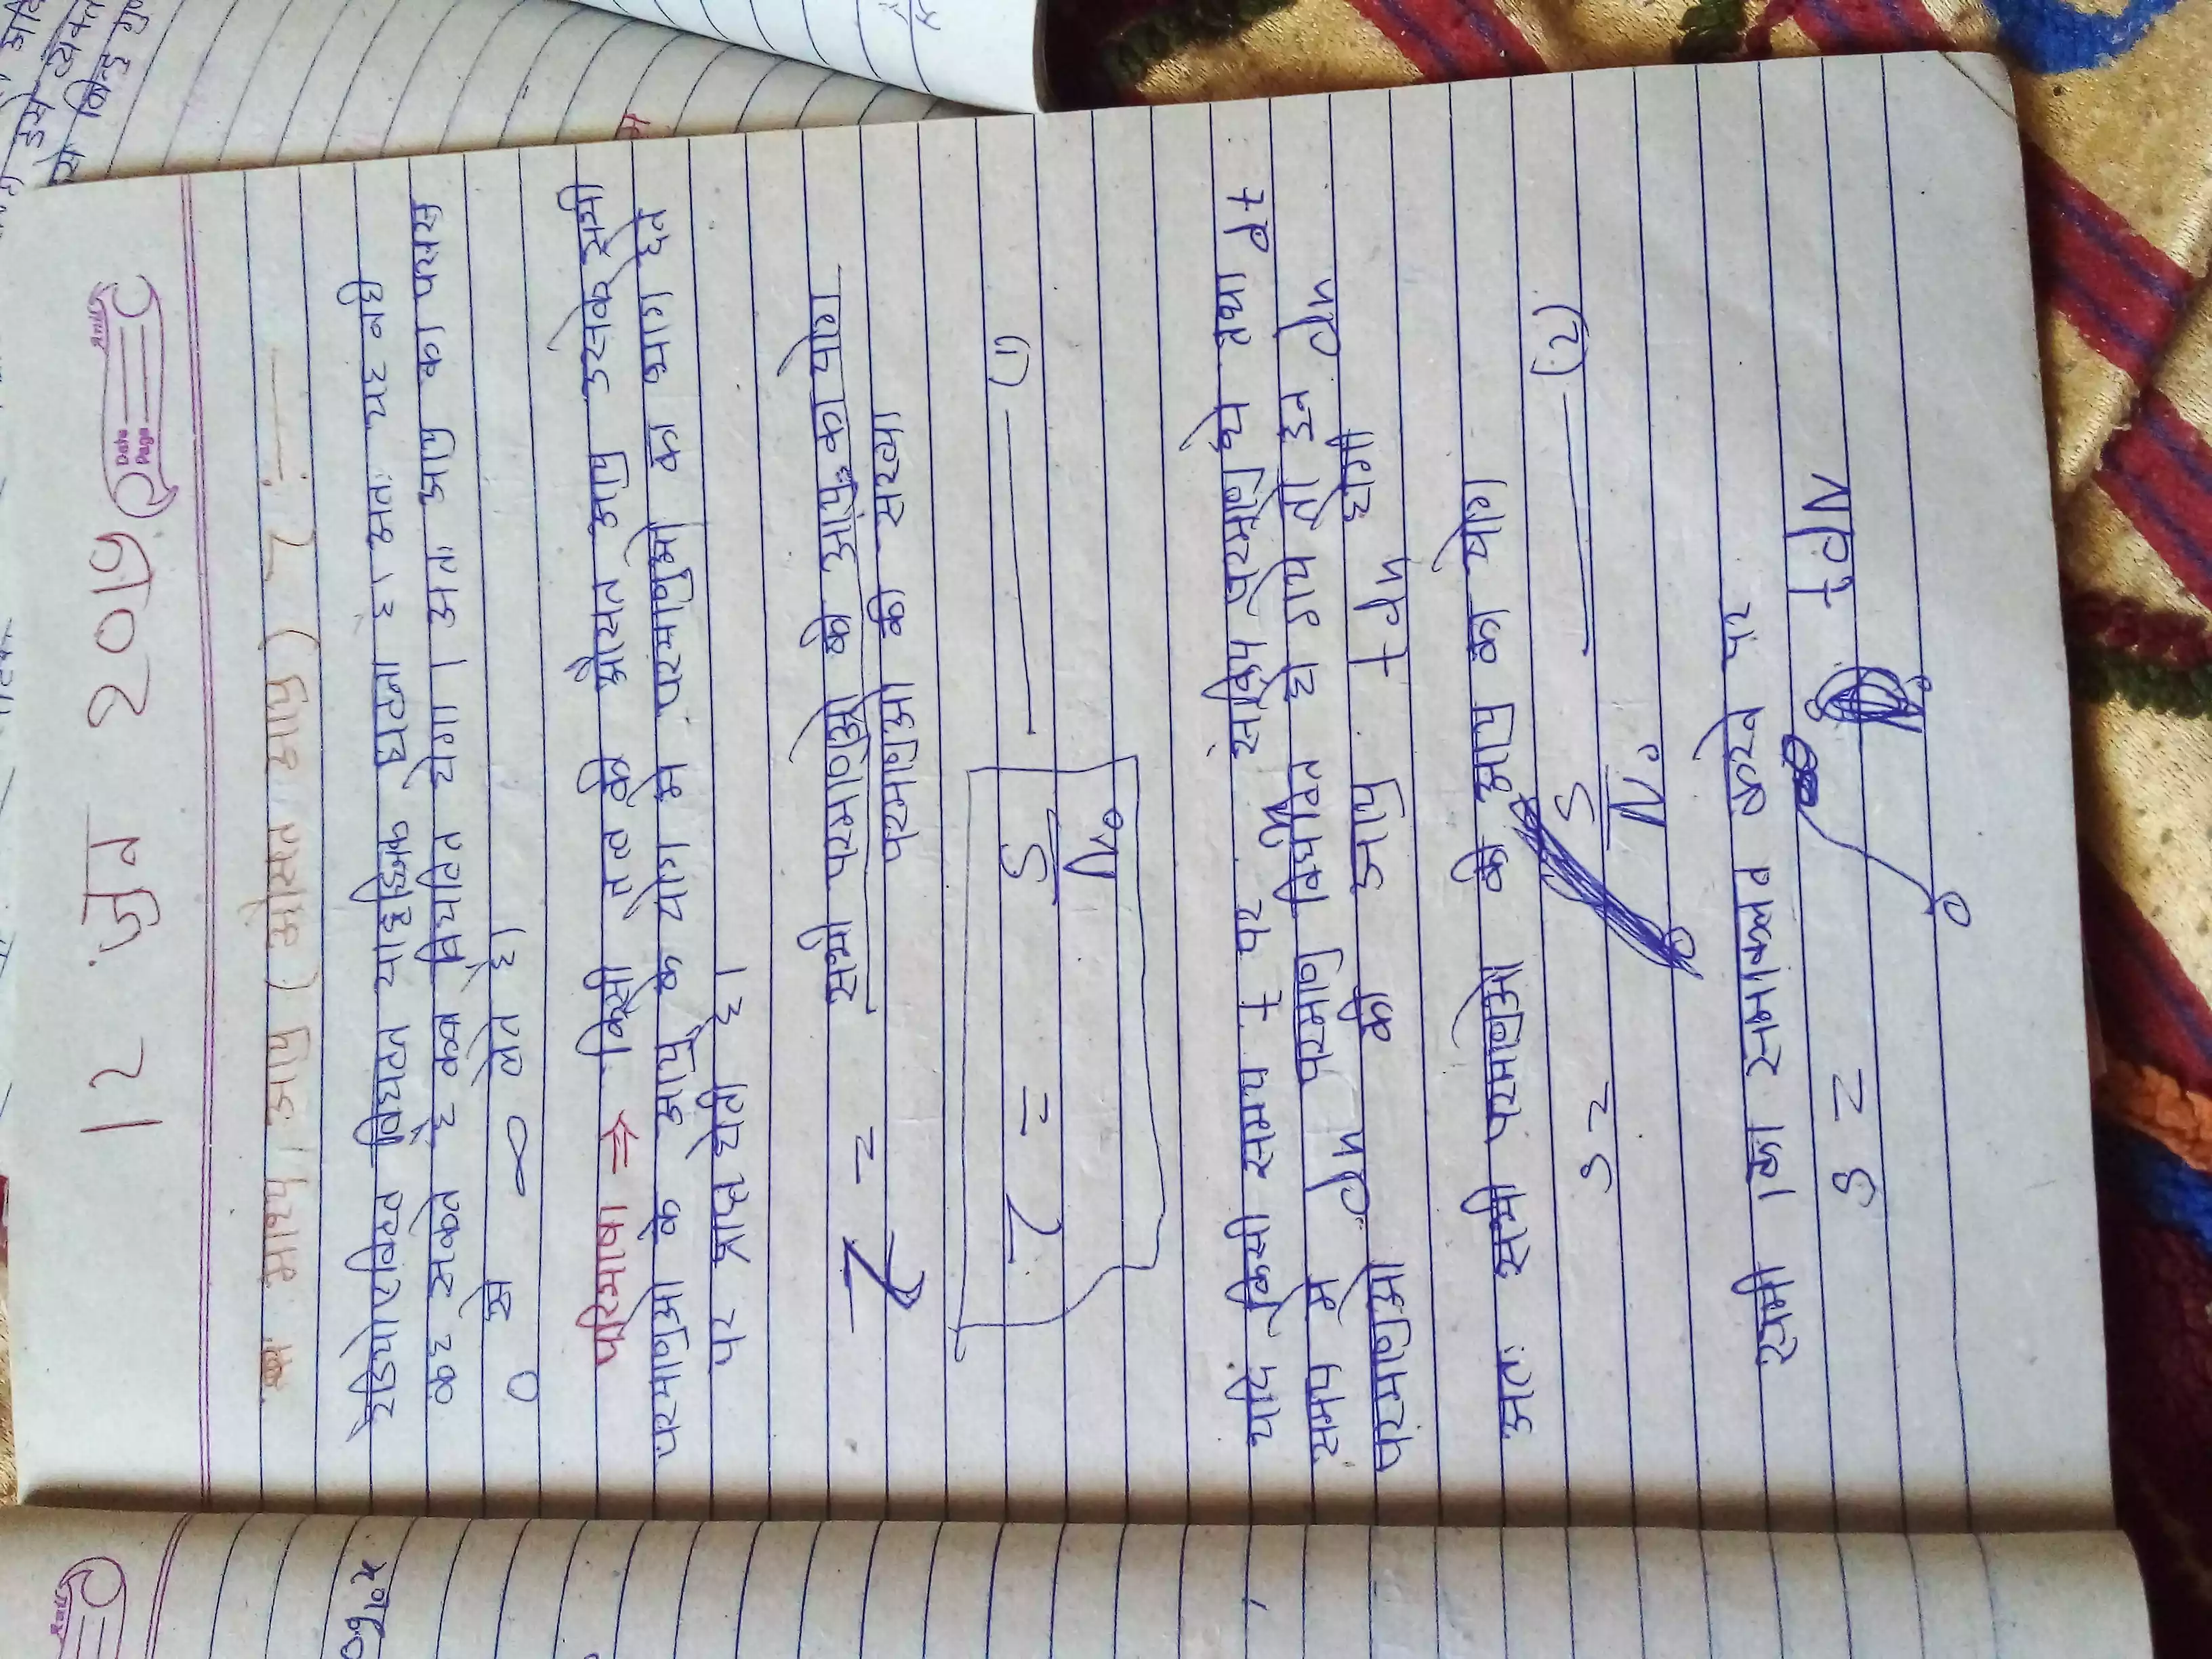 12 जुन 2019
Date
Page
* माध्य / औसत (क्षयांक) आयु T :-
रेडियोएक्टिव विघटन यादृक्षिक घटना है। अतः यह नही
कह सकते है कब विघटित होगा। अतः आयु का परास
0 से ∞ लेते है।
परिभाषा ⇒ किसी तत्व की औसत आयु उसके सभी
परमाणुओ के आयु के योग मे परमाणुओ का भाग देने
पर प्राप्त होती है।
T = सभी परमाणुओ की आयु का योग
परमाणुओ की संख्या
T = S/N₀ — (1)
यदि किसी समय t पर सक्रिय परमाणु हो तथा dt
समय मे dn परमाणु विघटित हो जाये तो इन dn
परमाणुओ की आयु t dn होगी
अतः सभी परमाणुओ की आयु का योग
S = S/N₀ — (2)
समी का समाकलन करने पर
S = ∫ t dN